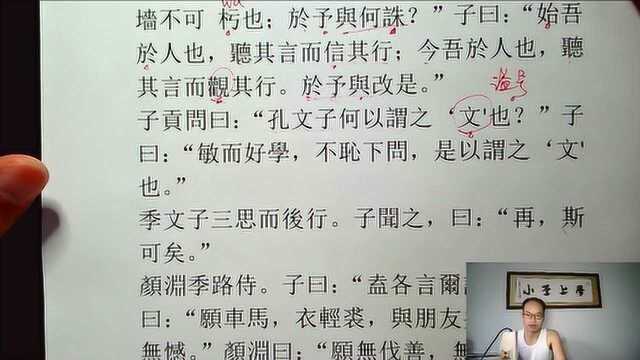 wū
墙不可 杇也；於予與何誅？”子曰：“始吾
於人也，聽其言而信其行；今吾於人也，聽
其言而觀其行。於予與改是。”
谥号
子貢問曰：“孔文子何以謂之‘文'也？”子
曰：“敏而好學，不恥下問，是以謂之‘文'
也。”
季文子三思而後行。子聞之，曰：“再，斯
可矣。”
顏淵季路侍。子曰：“盍各言爾
曰：“願車馬，衣輕裘，與朋友
無憾。”顏淵曰：“願無伐善，無